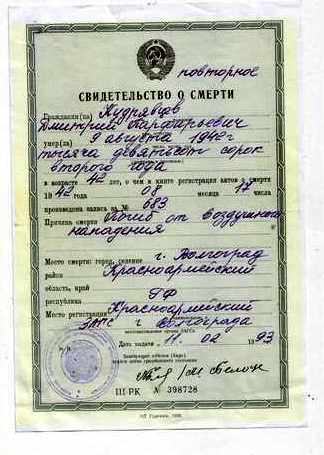 повторное
СВИДЕТЕЛЬСТВО О СМЕРТИ
Гражданин(ка) Кудрявцов
Дмитрий
умер(ла) 9 августа 1942г
тысяча девятьсот сорок
второго года
в возрасте 42 лет, о чем в книге регистрации актов о смерти
1942 года 08 месяца 17 числа
произведена запись за № 683
Причина смерти Погиб от воздушного
нападения
Место смерти: город, селение г. Волгоград
район Красноармейский
область, край
республика РФ
Место регистрации Красноармейский
ЗАГС г Волгограда
Дата выдачи 11. 02 1993
М.П.
III-РК № 398728